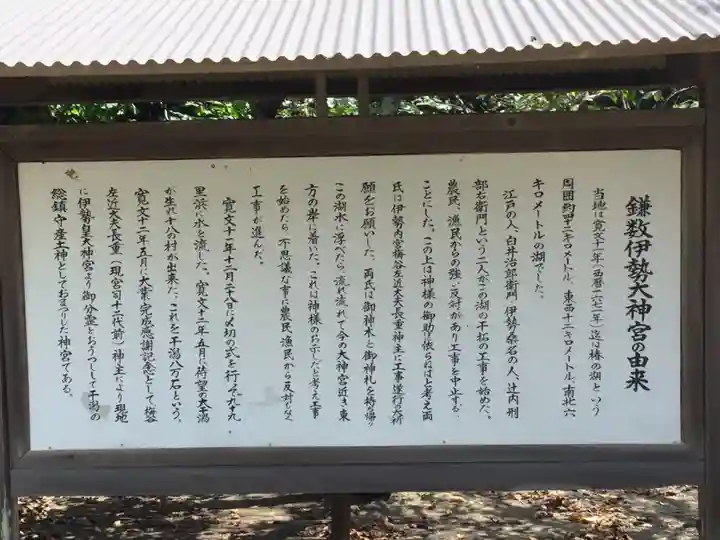 鎌数伊勢大神宮の由来
当地は寛文十一年(西暦一六七一年)迄は椿の湖という
周囲約四十二キロメートル、東西十二キロメートル、南北六
キロメートルの湖でした。
江戸の人、白井治郎衛門・伊勢桑名の人、辻内刑
部右衛門という二人がこの湖の干拓の工事を始めた。
農民、漁民からの強い反対があり工事を中止する
ことにした。この上は神様の御助け依らねばと考え両
氏は伊勢内宮梅谷左近大夫長重神主に工事遂行の大祈
願をお願いした。両氏は御神木と御神札を持ち帰り
この湖水に浮べたら、流れ流れて今の大神宮近き東
方の岸に着いた。これは神様のお示しだと考え工事
を始めたら、不思議な事に農民、漁民から反対がなく
工事が進んだ。
寛文十一年十二月二十八日に〆切の式を行って九十九
里浜に水を流した。寛文十二年五月に待望の大干潟
が生れ十八の村が出来た。これを干潟八万石という。
寛文十二年五月に大業完成感謝記念として梅谷
左近大夫長重(現宮司十二代前)神主により現地
に伊勢皇大神宮より御分霊をおうつしして干潟の
総鎮守産土神としておまつりした神宮である。